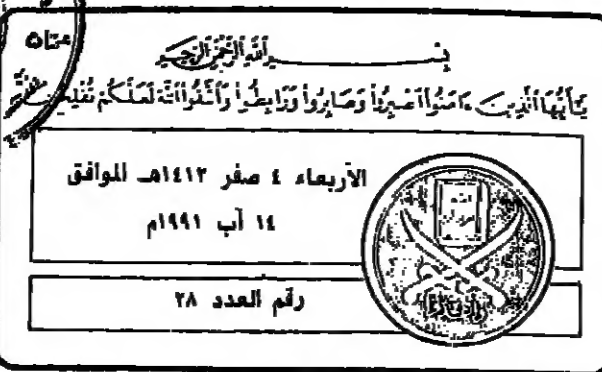 بسم الله الرحمن الرحيم
يَٰٓأَيُّهَا ٱلَّذِينَ ءَامَنُوا۟ ٱصْبِرُوا۟ وَصَابِرُوا۟ وَرَابِطُوا۟ وَٱتَّقُوا۟ ٱللَّهَ لَعَلَّكُمْ تُفْلِحُونَ
الأربعاء ٤ صفر ١٤١٢هـ الموافق
١٤ آب ١٩٩١م
رقم العدد ٢٨
وأعدوا